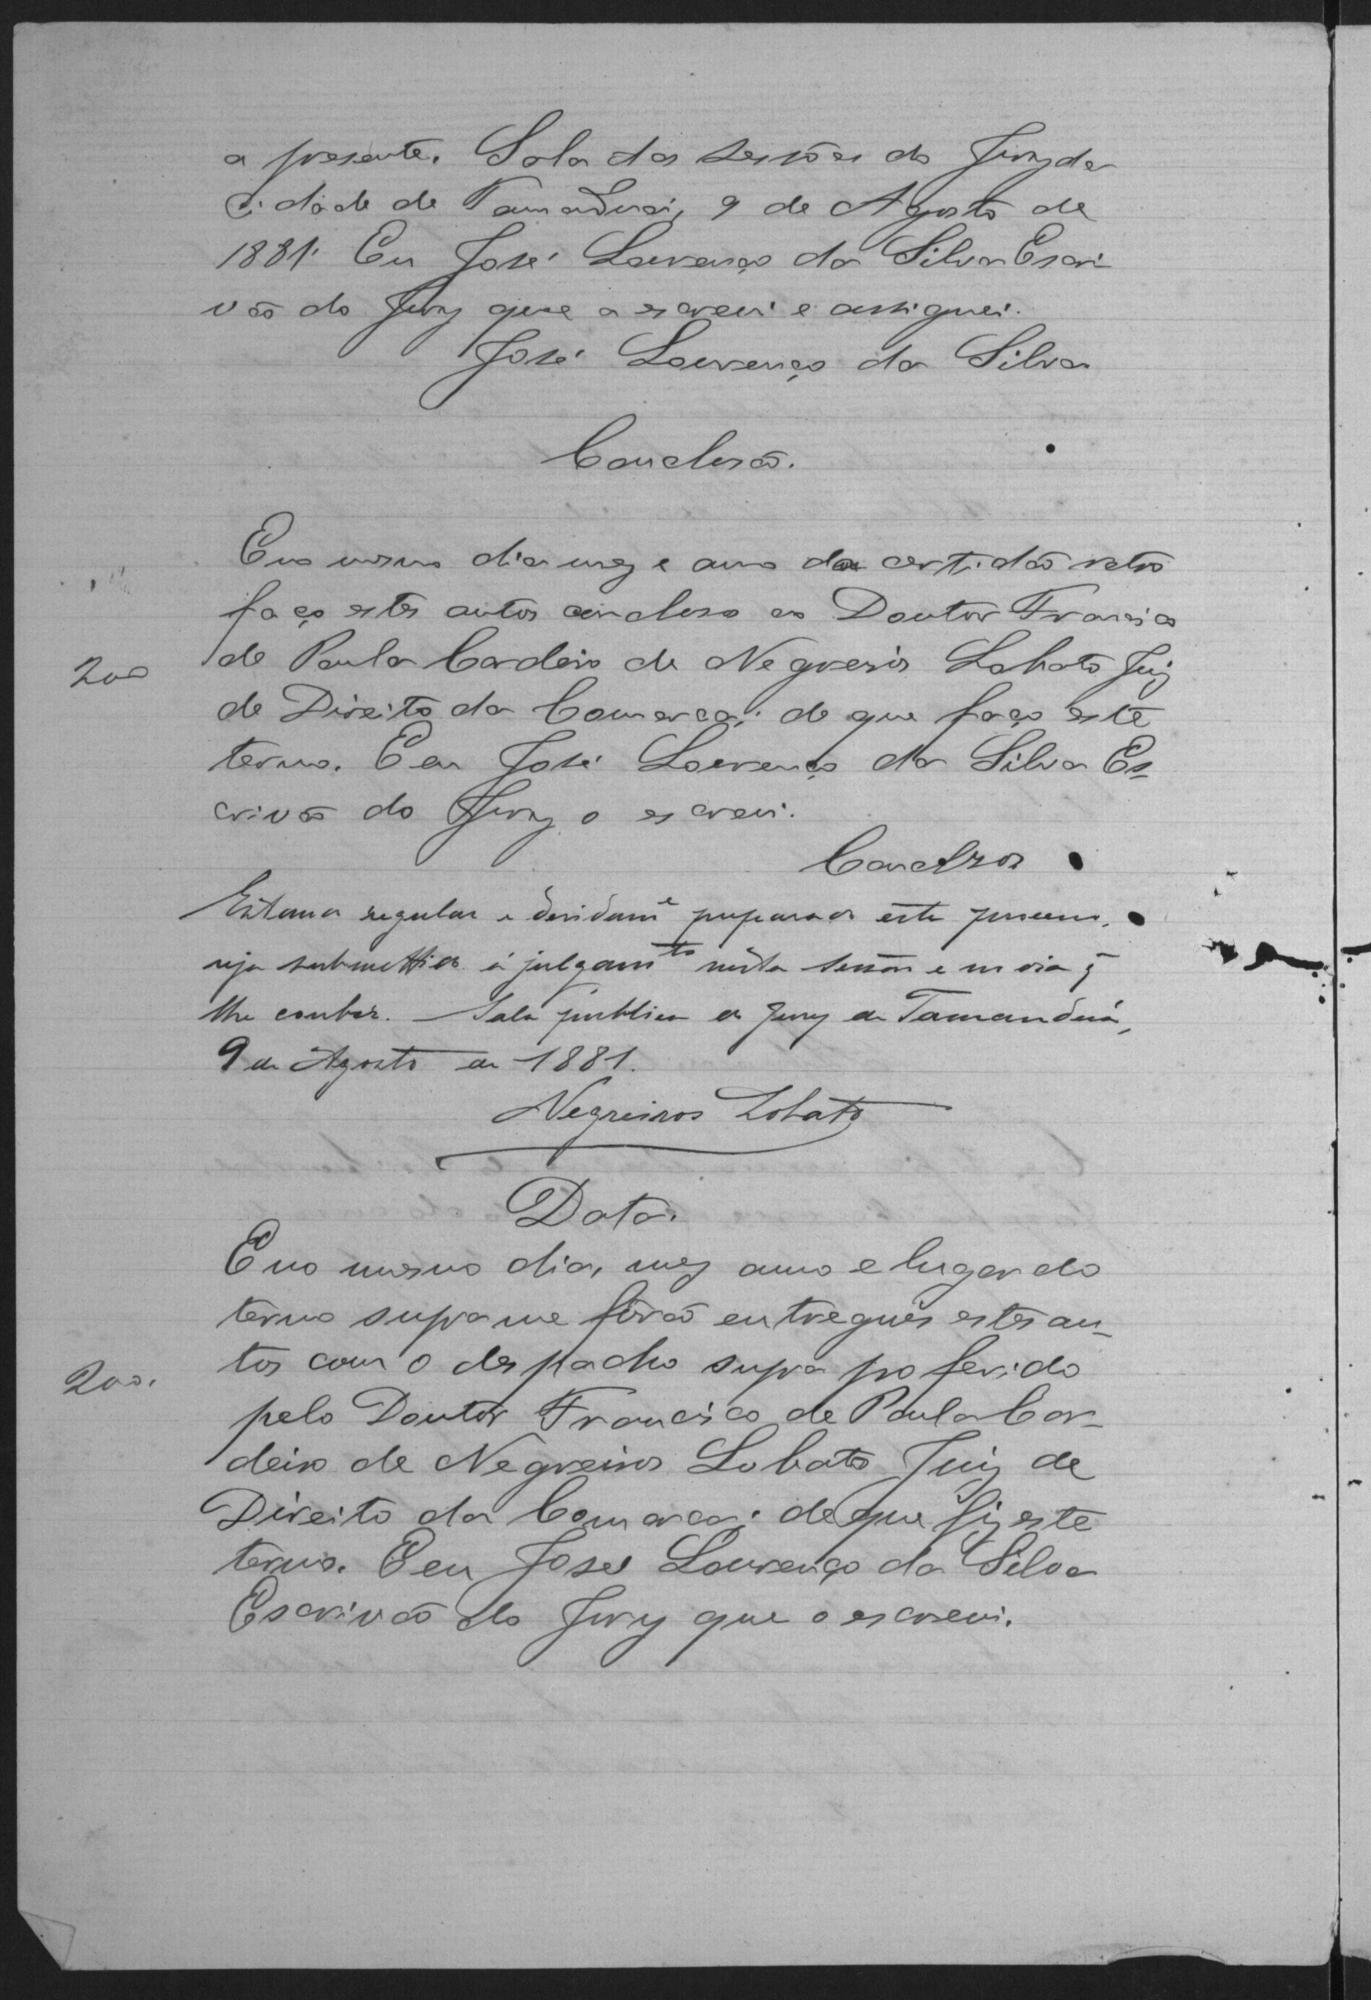 a presente. Sala das sessões do Jury da
Cidade de Tamanduá, 9 de Agosto de
1881. Eu José Lourenço da Silva Escri
vão do Jury que a escrevi e assignei.
José Lourenço da Silva
Conclusão.
E no mesmo dia mez e anno da certidão retro
faço estes autos concluso ao Doutor Francisco
200 de Paula Cordeiro de Negreiros Lobato Juiz
de Direito da Comarca; de que faço este
termo. E eu José Lourenço da Silva Es
crivão do Jury o escrevi.
Conclzos
Estando regular e devidamᵉ preparado este processo,
seja submettido á julgamᵗᵒ nesta sessão e no dia q̃
lhe couber. Sala publica do Jury de Tamanduá,
9 de Agosto de 1881.
Negreiros Lobato
Data.
E no mesmo dia, mez anno e lugar do
termo supra me forão entregues estes au_
200. tos com o despacho supra proferido
pelo Doutor Francisco de Paula Cor_
deiro de Negreiros Lobato Juiz de
Direito da Comarca; de que fiz este
termo. E eu José Lourenço da Silva
Escrivão do Jury que o escrevi.